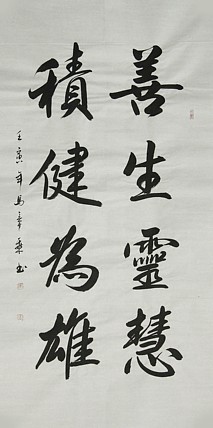 善生靈慧
積健為雄
壬寅年馬
書